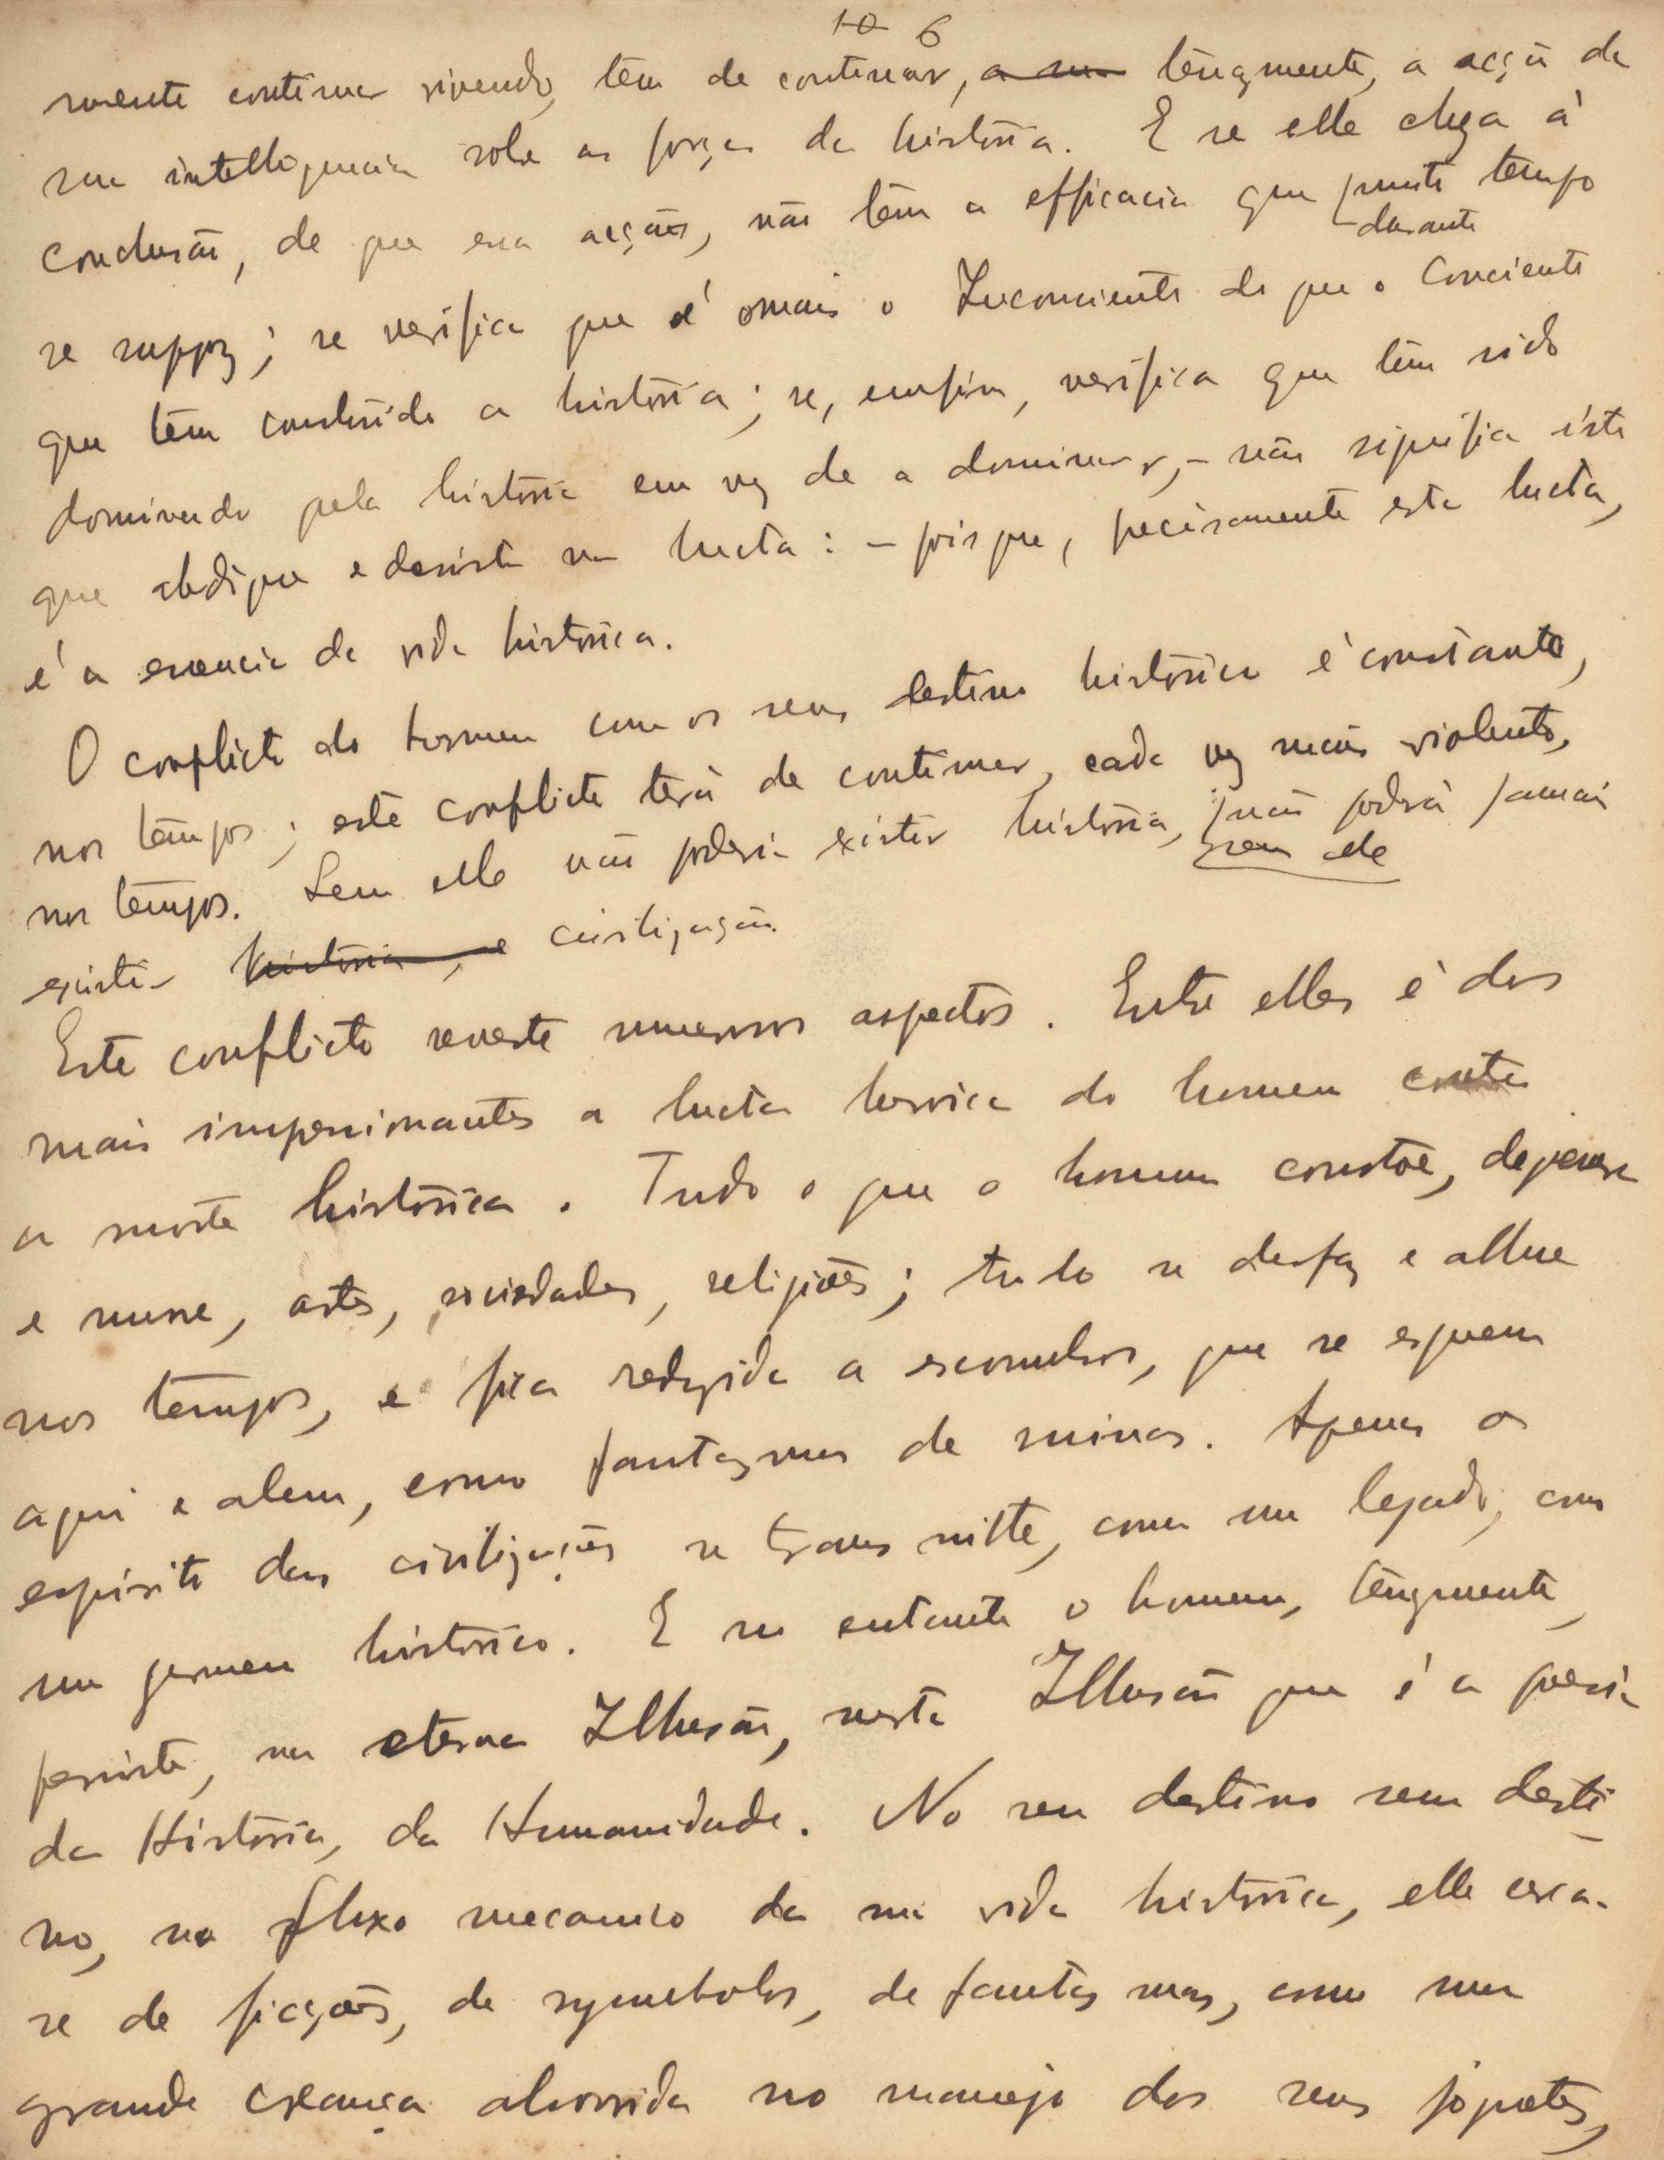 10 6
mente continuar vivendo, têm de continuar, a sua tenazmente, a acção da
sua intelligencia sobre as forças da historia. E se elle chega á
conclusão, de que essa acção, não têm a efficacia que muito tempo
durante
se suppoz; se verifica que é mais o Inconsciente do que o Conciente
que têm construido a historia; se, emfim, verifica que têm sido
dominado pela historia em vez de a dominar, - não significa isto
que abdique e desista na lucta: - pois que, precisamente esta lucta,
é a essencia da vida historica.
O conflicto do homem com os seus destino historico é constante,
nos tempos; este conflicto terá de continuar, cada vez mais violento,
nos tempos. Sem elle não poderia existir historia, não poderá jamais
sem ele
existir historia, e civilização.
Este conflicto reveste numerosos aspectos. Entre elles é dos
mais impressionantes a lucta heroica do homem contra
a morte historica. Tudo o que o homem constroe, deperece
e morre, artes, sociedades, religiões; tudo se desfaz e allue
nos tempos, e fica reduzida a escombros, que se erguem
aqui e alem, como fantasmas de ruinas. Apenas o
espirito das civilizações se transmitte, como um legado, como
um germen historico. E no entanto o homem, tenazmente,
persiste, na eterna Illusão, nesta Illusão que é a poesia
da Historia, da Humanidade. No seu destino sem desti-
no, no fluxo mecanico da sua vida historica, elle cerca-
se de ficções, de symbolos, de fantasmas, como uma
grande creança absorvida no manejo dos seus joguetes,